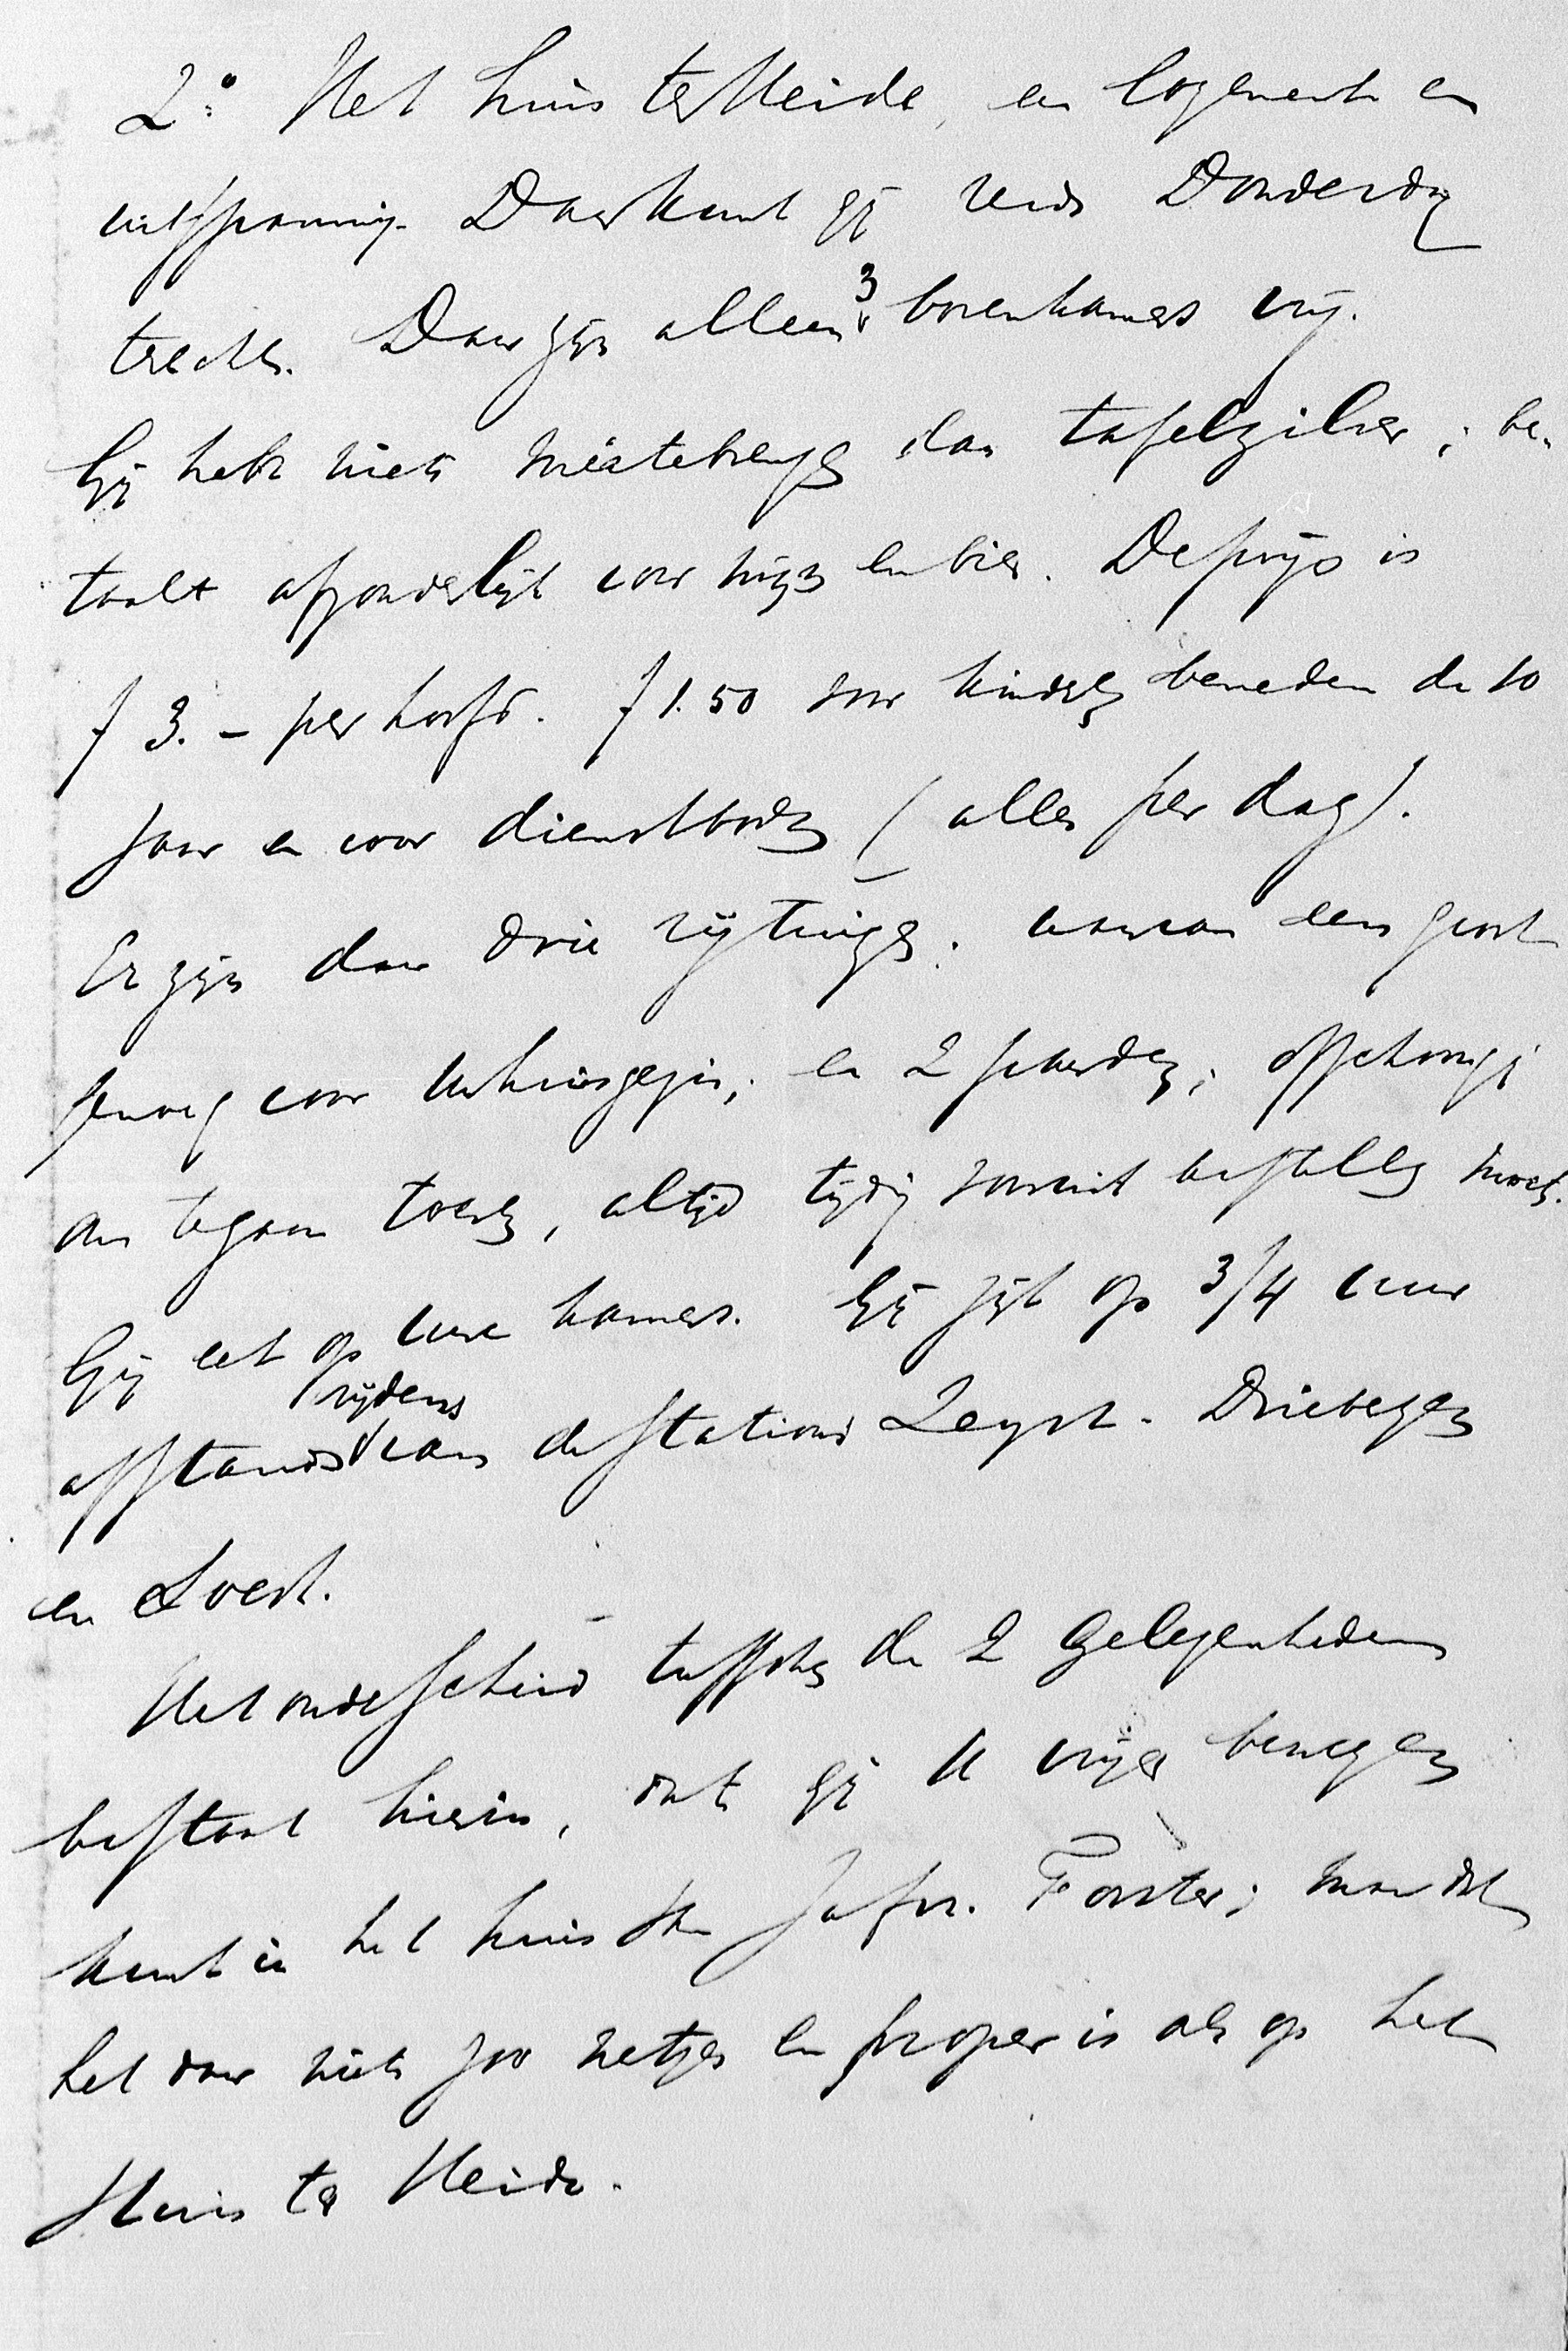 2o. Het huis ter Heide, en logement en
uitspanning. Daar kunt gij reeds Donderdag
trechts. Daar zijn alleen 3 bovenkamers vrij.
Gij hebt niets mêetebrengen dan tafelzilver; be-
taalt afzonderlijk voor wijn en bier. De prijs is
f 3.– per hoofd. f 1.50 voor kinderen beneden de 10
jaar en voor dienstboden (alles per dag).
Er zijn daar drie rijtuigen, waarvan een groot
genoeg voor Uw huisgezin; en 2 paarden; ofschoon gij
om te gaan toeren, altijd tijdig vooruit bestellen moet.
Gij eet op uwe kamers. Gij zijt op 3/4 uur
rijdens
afstands van de stations Zeyst-Driebergen
en Soest.
Het onderscheid tusschen de 2 gelegenheden
bestaat hierin, dat gij U vrijer bewegen
kunt in het huis der Jufvr. Forster; maar dat
het daar niet zoo netjes en proper is als op het
Huis ter Heide.